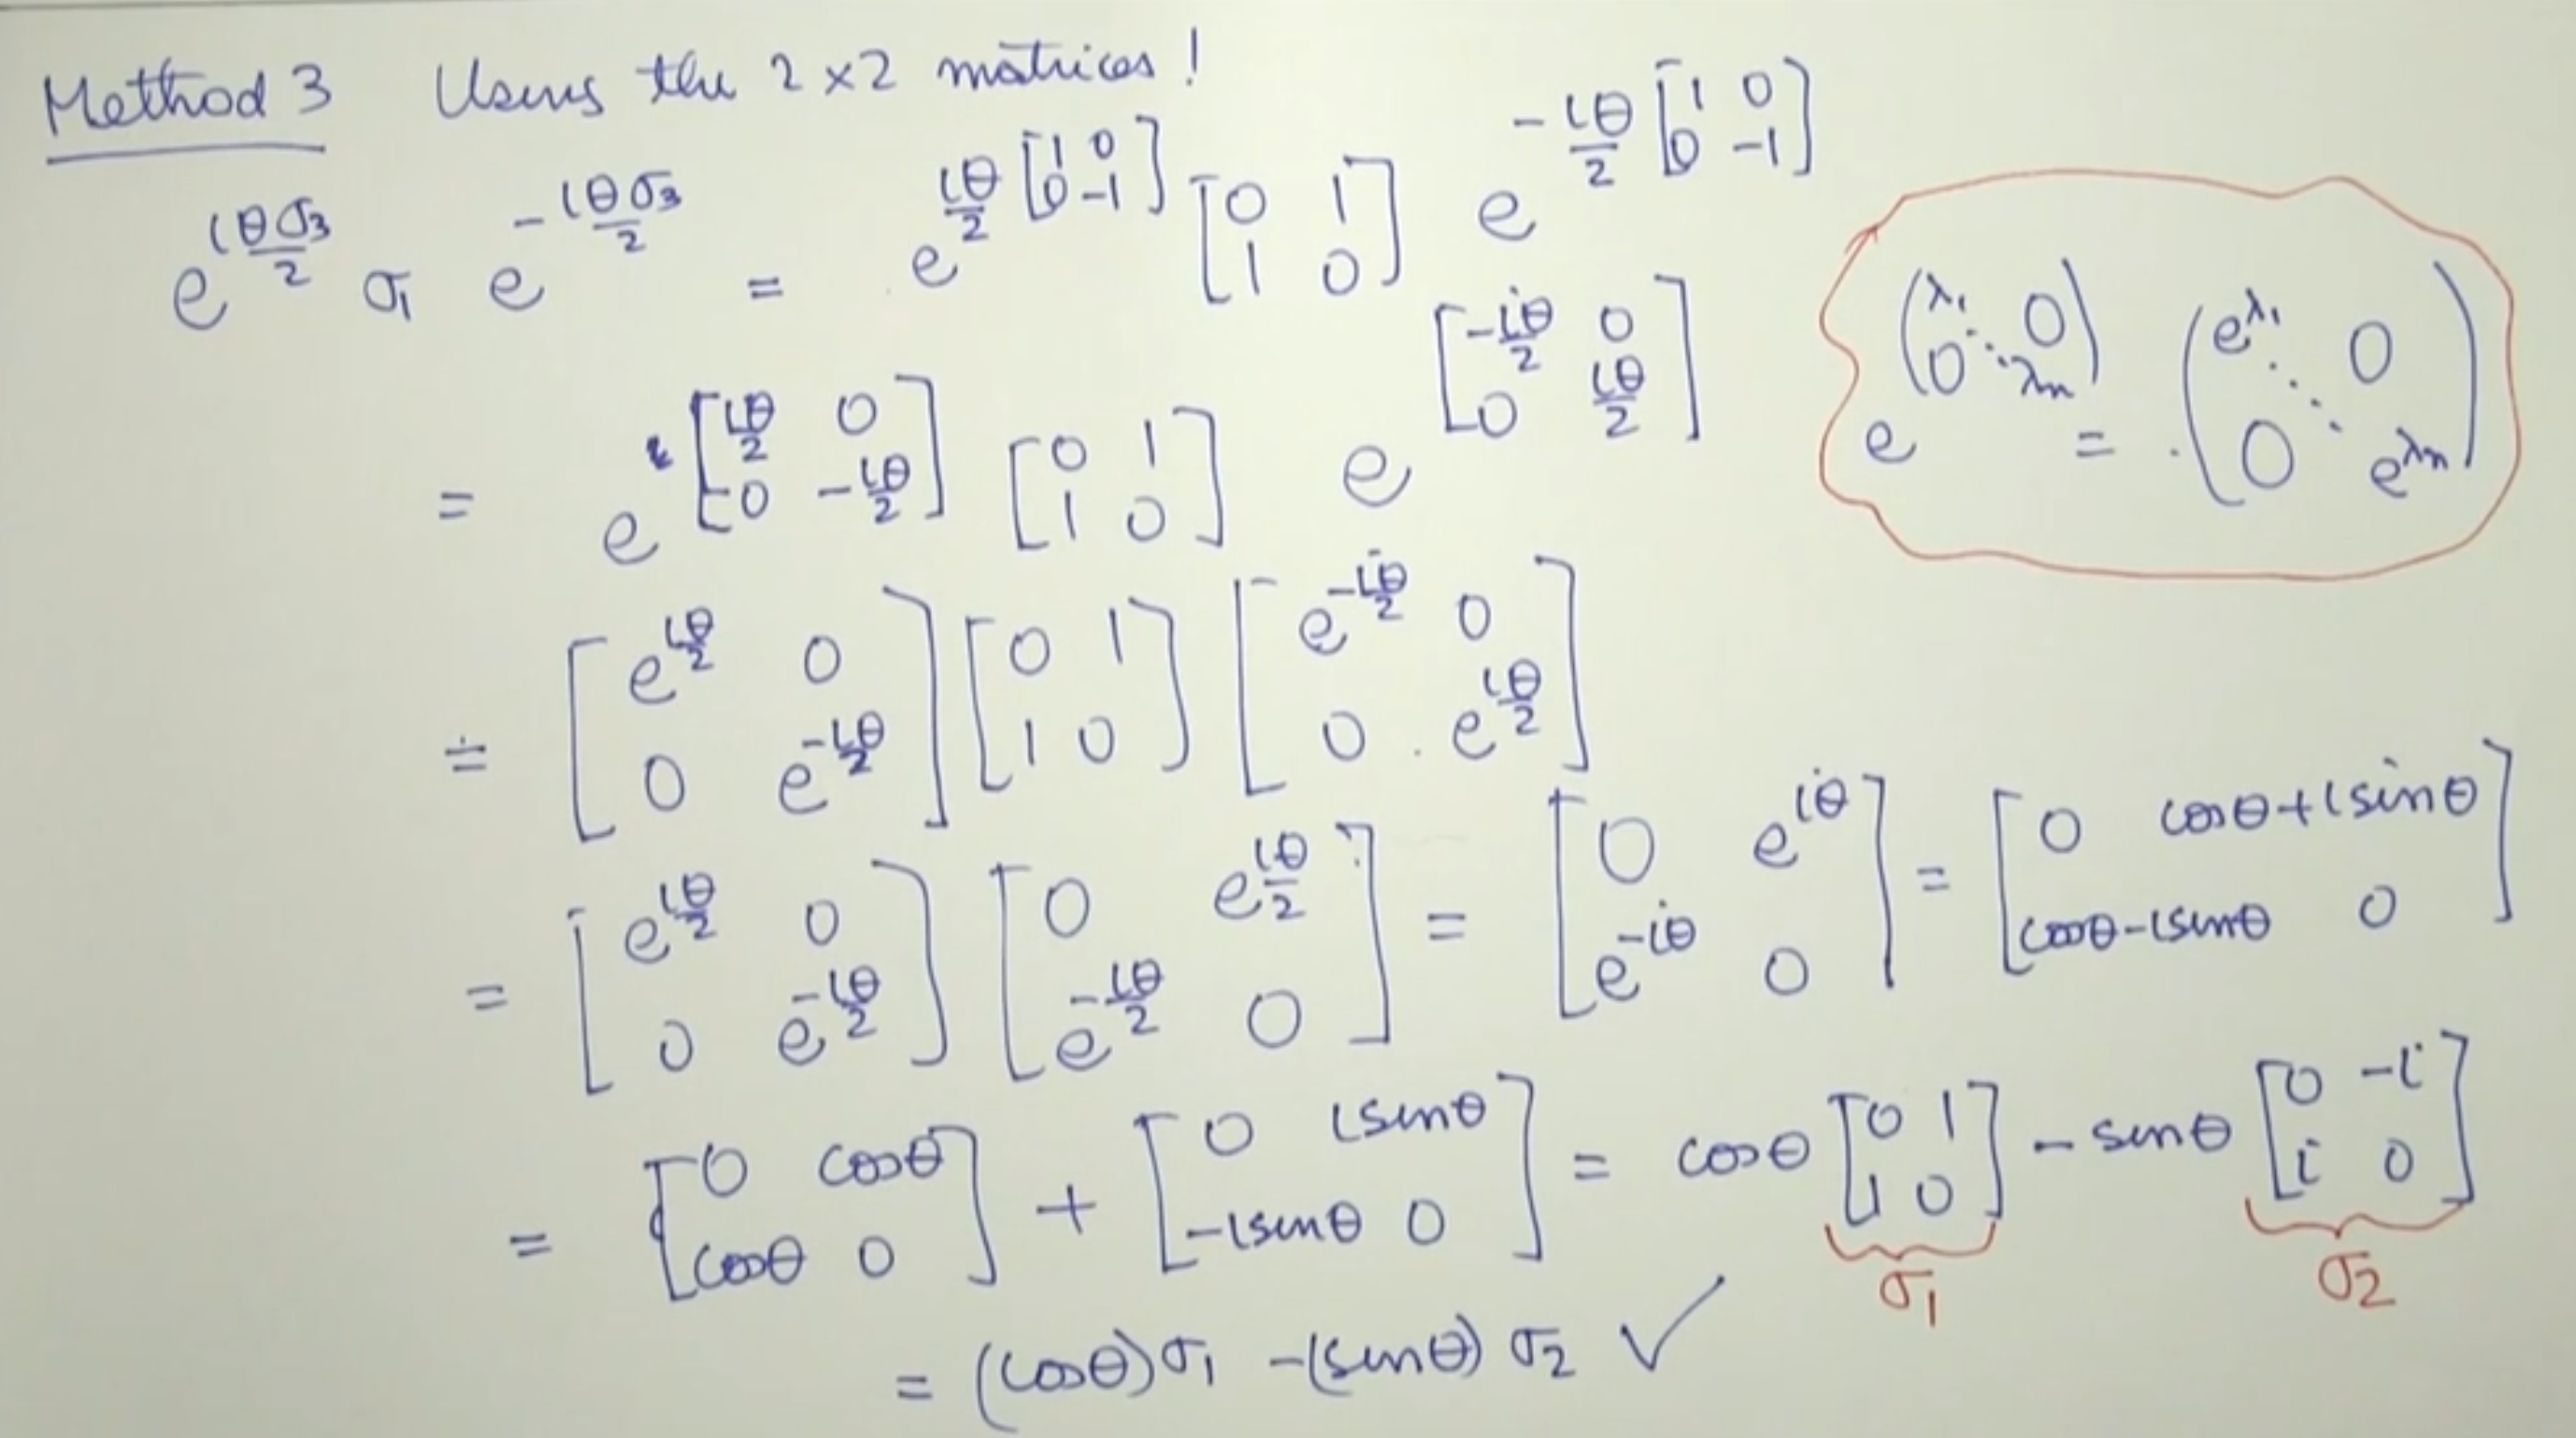 Method 3 Using the 2×2 matrices!
e^{iθσ₃/2} σ₁ e^{-iθσ₃/2} = e^{iθ/2 [1 0; 0 -1]} [0 1; 1 0] e^{-iθ/2 [1 0; 0 -1]}
= e^{[iθ/2 0; 0 -iθ/2]} [0 1; 1 0] e^{[-iθ/2 0; 0 iθ/2]}
e^{(λ₁ 0; ⋱; 0 λₙ)} = (e^{λ₁} 0; ⋱; 0 e^{λₙ})
= [e^{iθ/2} 0; 0 e^{-iθ/2}] [0 1; 1 0] [e^{-iθ/2} 0; 0 e^{iθ/2}]
= [e^{iθ/2} 0; 0 e^{-iθ/2}] [0 e^{iθ/2}; e^{-iθ/2} 0] = [0 e^{iθ}; e^{-iθ} 0] = [0 cosθ+isinθ; cosθ-isinθ 0]
= [0 cosθ; cosθ 0] + [0 isinθ; -isinθ 0] = cosθ [0 1; 1 0] - sinθ [0 -i; i 0]
σ₁ σ₂
= (cosθ)σ₁ -(sinθ) σ₂ ✓